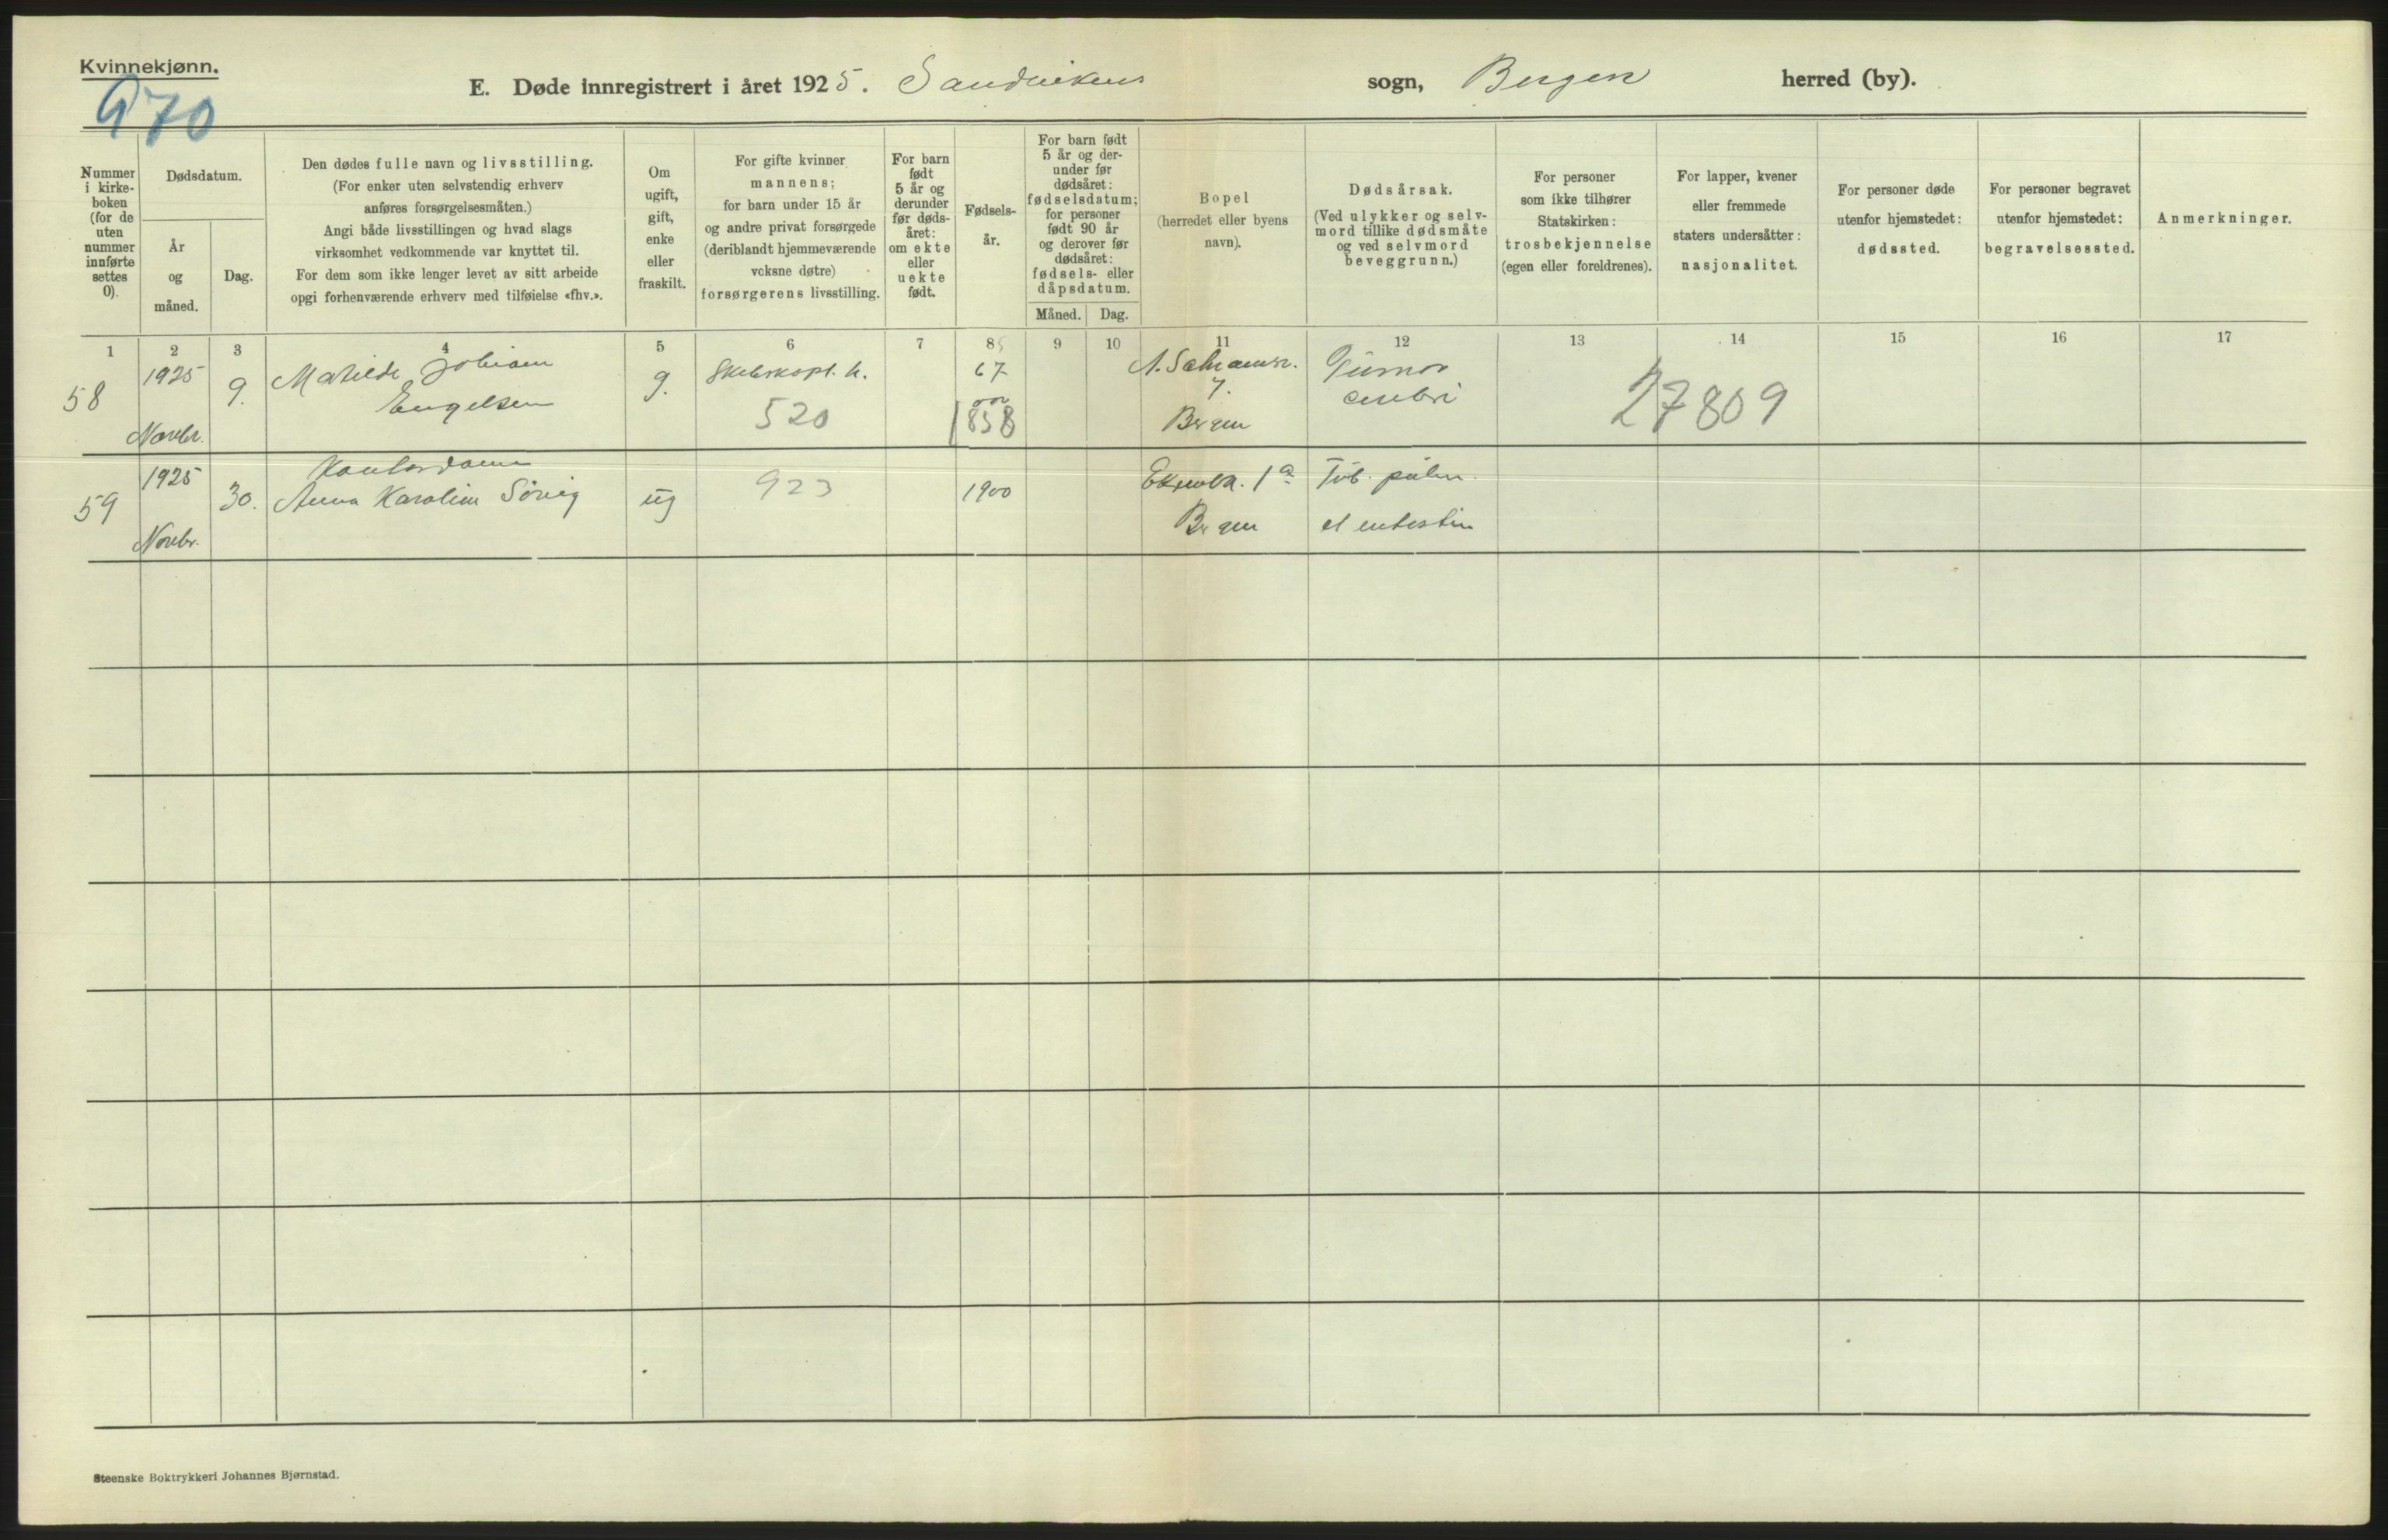 Kvinnekjønn.
970
E. Døde innregistrert i året 1925. Sandvikens sogn, Bergen herred (by).
Nummer i kirke-boken (for de uten nummer innførte settes 0).
Dødsdatum.
År og måned.
Dag.
Den dødes fulle navn og livsstilling.
(For enker uten selvstendig erhverv
anføres forsørgelsesmåten.)
Angi både livsstillingen og hvad slags
virksomhet vedkommende var knyttet til.
For dem som ikke lenger levet av sitt arbeide
opgi forhenværende erhverv med tilføielse «fhv.».
Om
ugift,
gift,
enke
eller
fraskilt.
For gifte kvinner
mannens;
for barn under 15 år
og andre privat forsørgede
(deriblandt hjemmeværende
voksne døtre)
forsørgerens livsstilling.
For barn
født
5 år og
derunder
før døds-
året:
om ekte
eller
uekte
født.
Fødsels-
år.
For barn født
5 år og der-
under før
dødsåret:
fødselsdatum;
for personer
født 90 år
og derover før
dødsåret:
fødsels- eller
dåpsdatum.
Måned. Dag.
Bopel
(herredet eller byens
navn).
Dødsårsak.
(Ved ulykker og selv-
mord tillike dødsmåte
og ved selvmord
beveggrunn.)
For personer
som ikke tilhører
Statskirken:
trosbekjennelse
(egen eller foreldrenes).
For lapper, kvener
eller fremmede
staters undersåtter:
nasjonalitet.
For personer døde
utenfor hjemstedet:
dødssted.
For personer begravet
utenfor hjemstedet:
begravelsessted.
Anmerkninger.
1 2 3 4 5 6 7 8 9 10 11 12 13 14 15 16 17
58 1925 Novbr. 9. Matilde
Engelsen
g.
520
67
1858
7.
Bergen
Tumor
cerebri
27809
59 1925 Novbr. 30. Kontordame
Anna Karoline Sörvig
ug
923
1900
1a
Bergen
Tub. pulm.
et intestin
Steenske Boktrykkeri Johannes Bjørnstad.